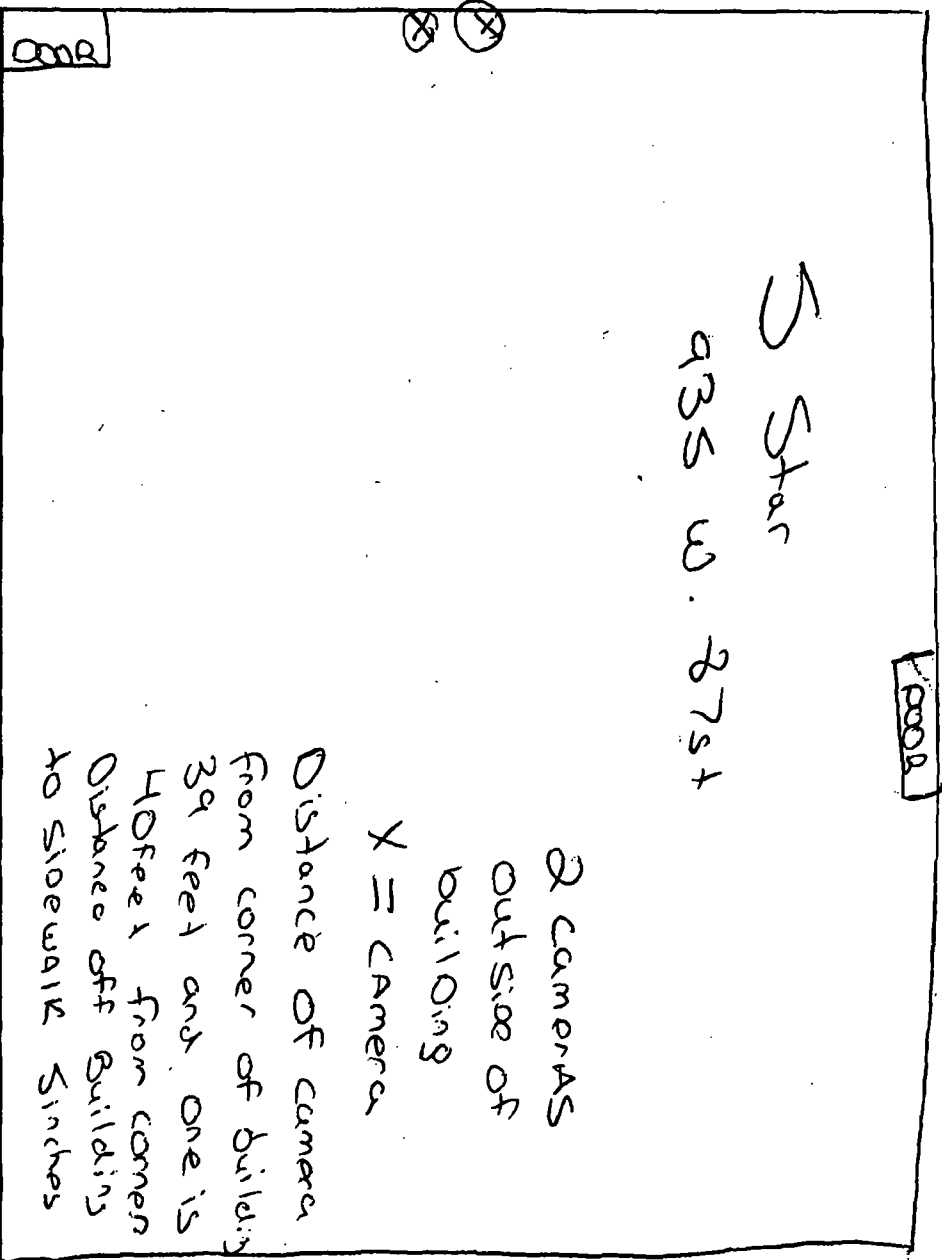 DOOR
5 Star
935 W. 27st
DOOR
2 camerAS
outside of
builDing
X = CAmera
Distance of camera
from corner of buildin
39 feet and one is
40feet from corner
Distance off Building
to SiDewAlk 5inches
X
X